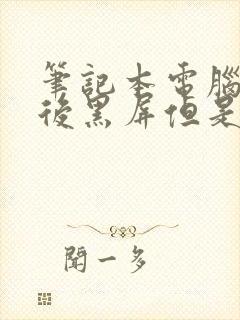 筆記本電腦
後黑屏但是
聞一多